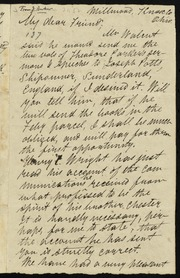 Millwood, Knox Co
Ohio
My dear Friend,
187 Mr Walcut
says he would send me the
five vols of Theodore Parker's ser-
mons & Speeches to Joseph Potts,
Sunderland,
England, if I desired it. Will
you tell him, that if he
will send the books in the
Feby parcel, I shall be much
obliged, and will pay for them
the first opportunity.
Henry C. Wright has just
read his account of the com-
munications he received from
what professed to be the
spirit of his brother Chester
It is hardly necessary, per-
haps for me to state, that
the account he has sent
you is strictly correct.
We have had a very pleasant